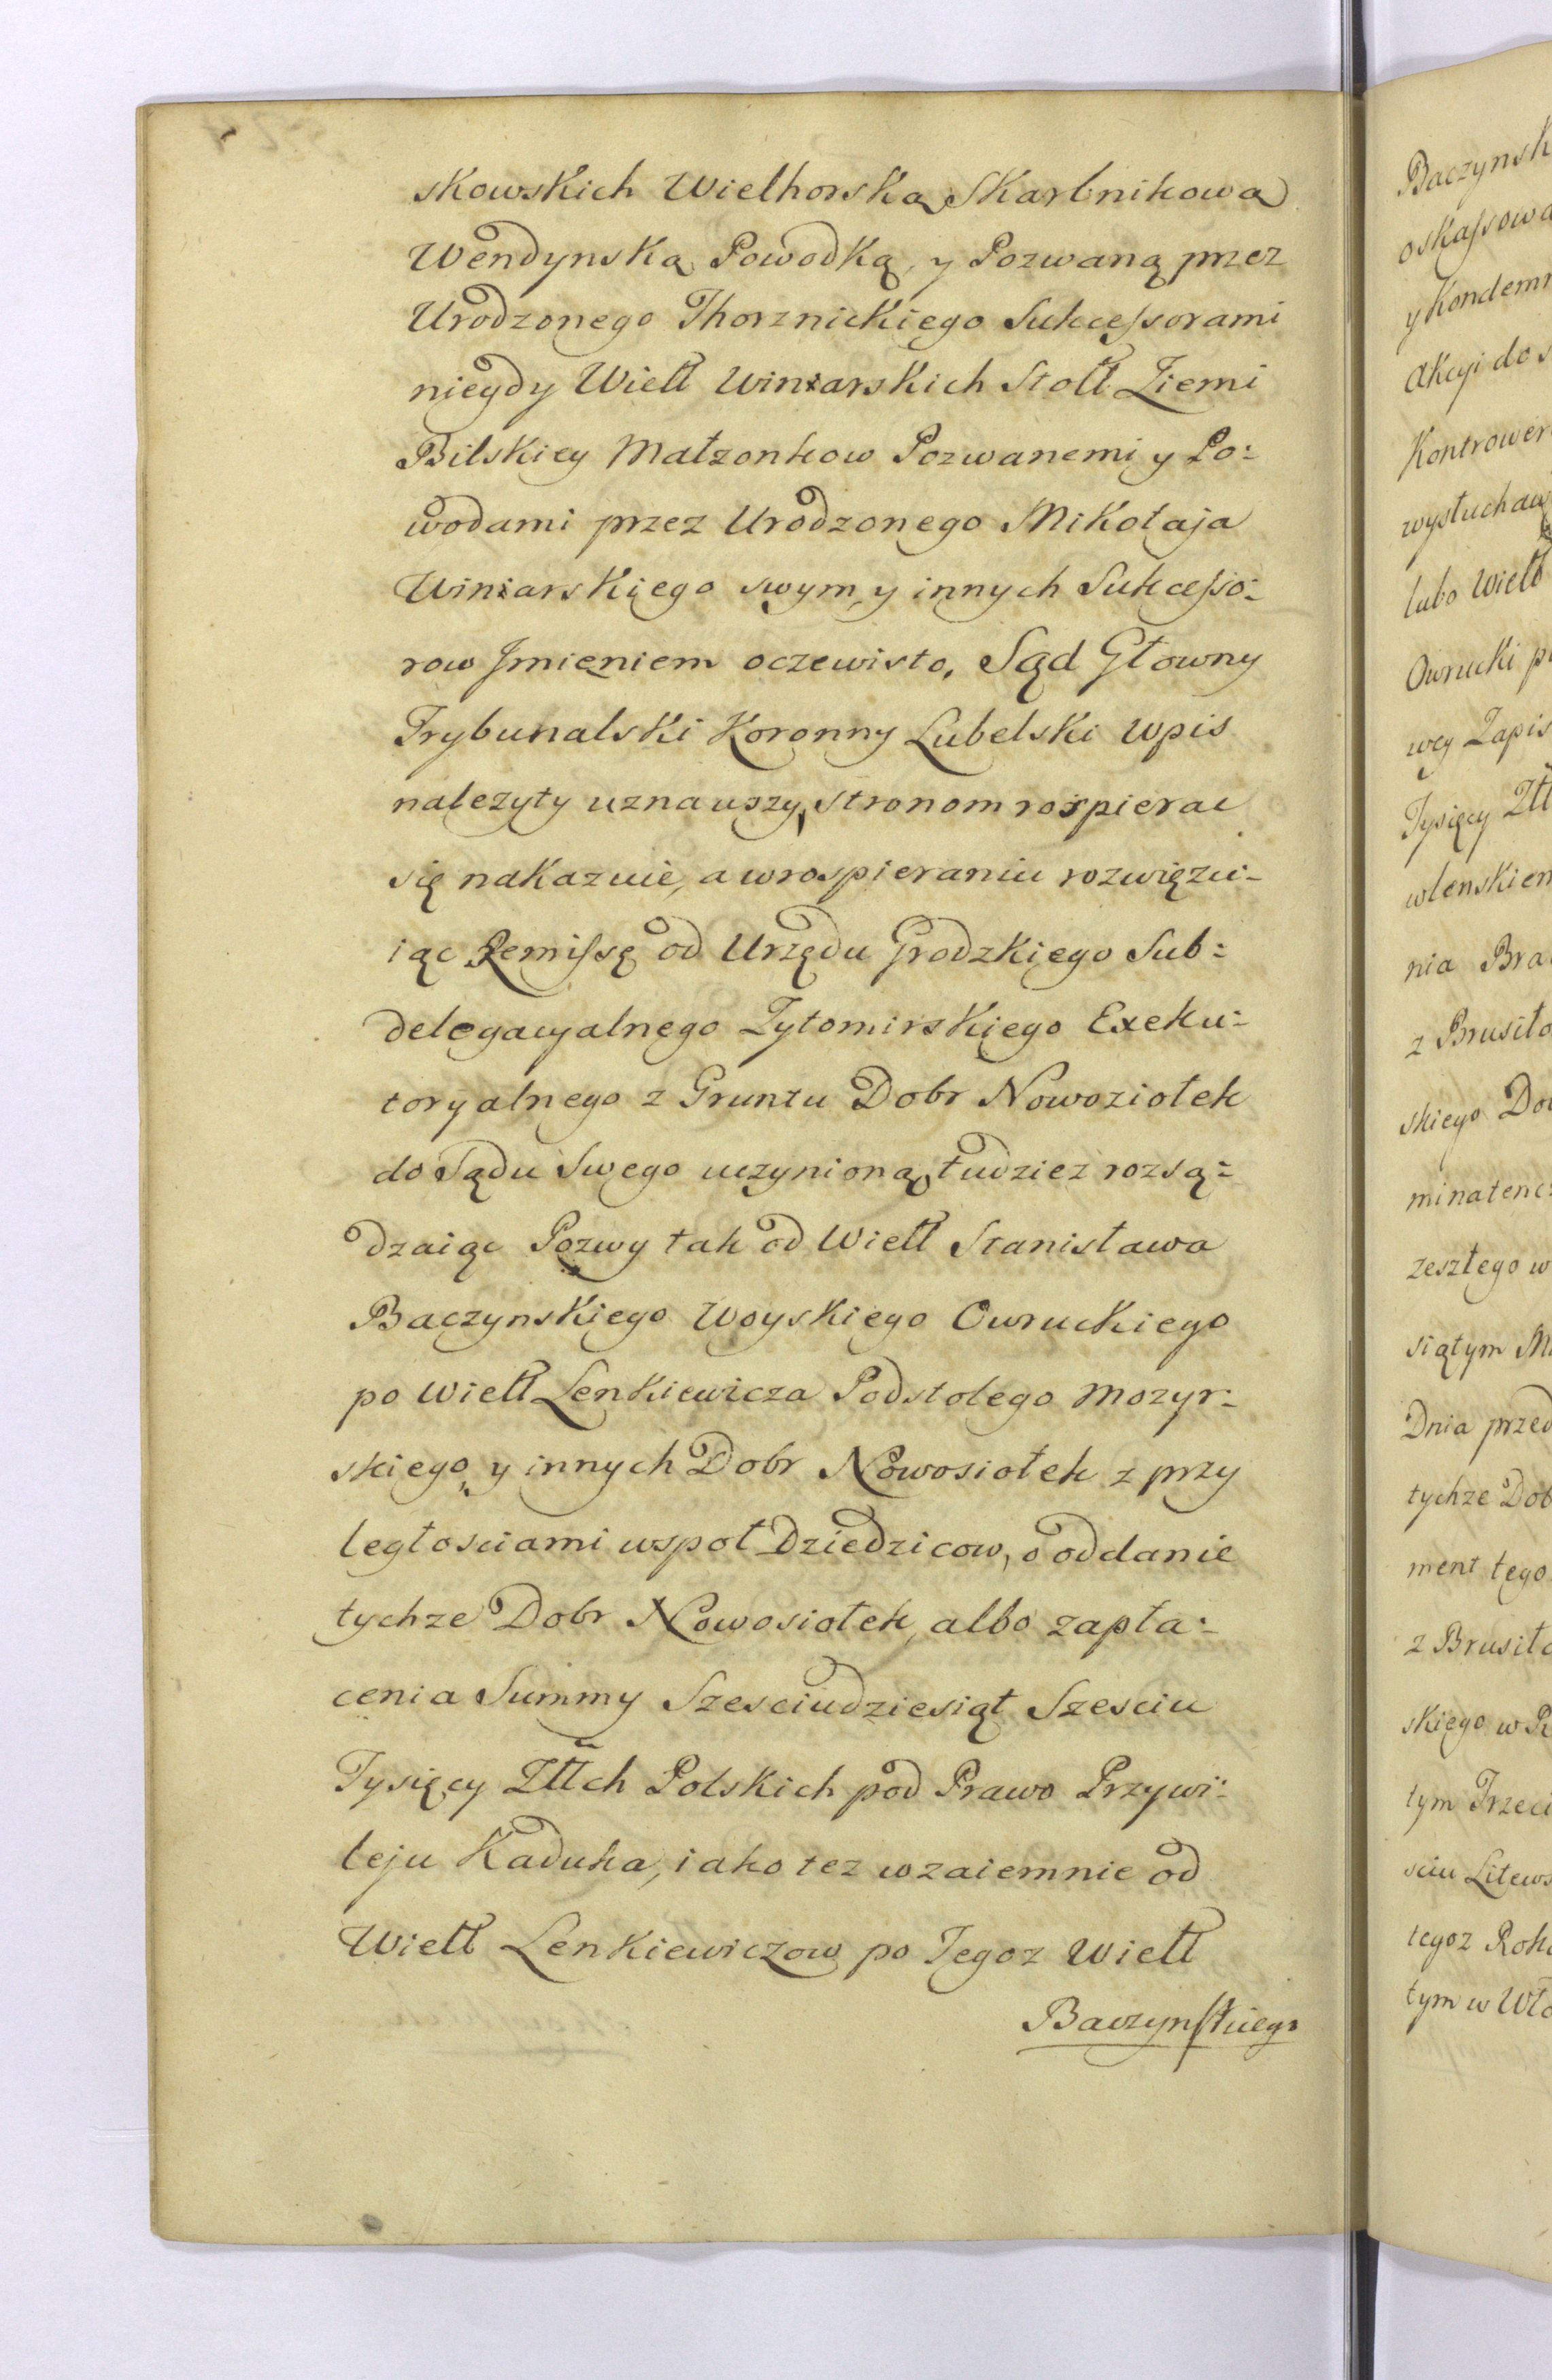 skowskich Wielhorską Skarbnikową
Wendynską Powodką, y Pozwaną przez
Urodzonego Thorznickiego Sukcessorami
niegdy Wiell Winiarskich Stoll Ziemi
Bilskiey Małzonkow Pozwanemi y Po:
wodami przez Urodzonego Mikołaja
Winiarskiego swym, y innych Sukcesso:
row Jmieniem oczewisto, Sąd Głowny
Trybunalski Koronny Lubelski Wpis
nalezyty uznawszy, stronom rospierac
się nakazuie, a w rospieraniu rozwięzu:
iąc Remissę od Urzędu Grodzkiego Sub:
delegacyalnego Zytomirskiego Exeku:
toryalnego z Gruntu Dobr Nowoziołek
do Sądu Swego uczynioną, tudziez rozsą:
dzaiąc Pozwy tak od Wiell Stanisława
Baczynskiego Woyskiego Owruckiego
po Wiell Lenkiewicza Podstolego Mozyr:
skiego, y innych Dobr Nowosiołek z przy
ległosciami wspoł Dziedzicow, o oddanie
tychze Dobr Nowosiołek, albo zapła:
cenia Summy Szesciudziesiąt Szesciu
Tysięcy Złłch Polskich pod Prawo Przywi:
leju Kaduka, iako tez wzaiemnie od
Wiell Lenkiewiczow po Tegoz Wiell
Baczynskiego
Baczynsk
oskassowa
y Kondemn
Akcyi do s
Kontrower
wysłuchaw
lubo Wiell
Owrucki p
wey Zapis
Tysięcy Złł
wlenskiem
nia Bra
z Brusiło
skiego Do
minatenc
zeszłego w
siątym M
Dnia przed
tychze Dob
ment tego
z Brusiło
skiego w R
tym Trzeci
sciu Litews
tegoz Rok
tym w Wło